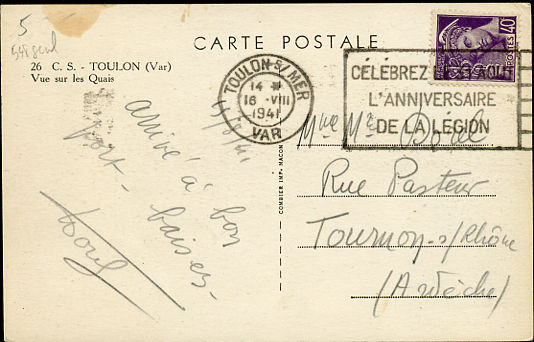 5
CARTE POSTALE
26 C. S. - TOULON (Var)
Vue sur les Quais
TOULON-S/MER
14 H
16 -VIII
1941
VAR
CÉLÉBREZ
L'ANNIVERSAIRE
DE LA LÉGION
POSTES 40
arrivé à bon
port -
baisers -
COMBIER IMP. MACON
Rue Pasteur
Tournon-s/Rhône
(Ardèche)